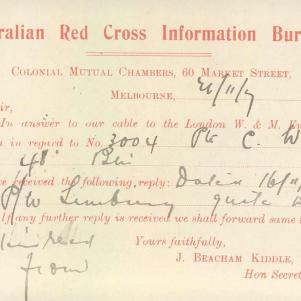 ralian Red Cross Information Bur
Colonial Mutual Chambers, 60 Market Street,
Melbourne, 26/11/17
ir,
In answer to our cable to the London W. & M.
in regard to No. 3004 Pte C. W
48 Bn
e received the following reply: Dated 16/11
P/W Limburg quite
If any further reply is received we shall forward same
Yours faithfully,
from
J. Beacham Kiddle,
Hon Secret